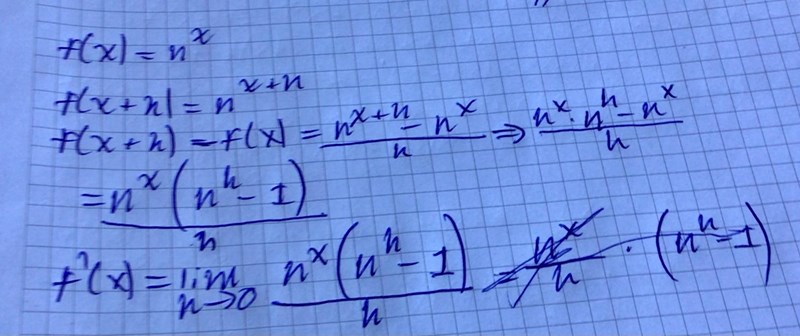 f(x) = n^x
f(x+h) = n^{x+h}
f(x+h) - f(x) = \frac{n^{x+h} - n^x}{h} ⇒ \frac{n^x · n^h - n^x}{h}
= \frac{n^x (n^h - 1)}{h}
f'(x) = lim_{h→0} \frac{n^x (n^h - 1)}{h} = \frac{n^x}{h} · (n^h - 1)